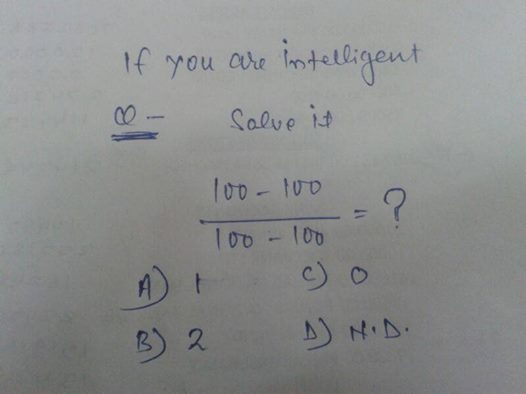 If you are intelligent
Q - Solve it
100 - 100
100 - 100 = ?
A) 1 C) 0
B) 2 D) N.D.